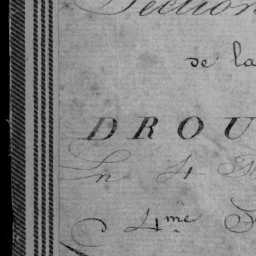 Section
de la
DROU
En 4
4me